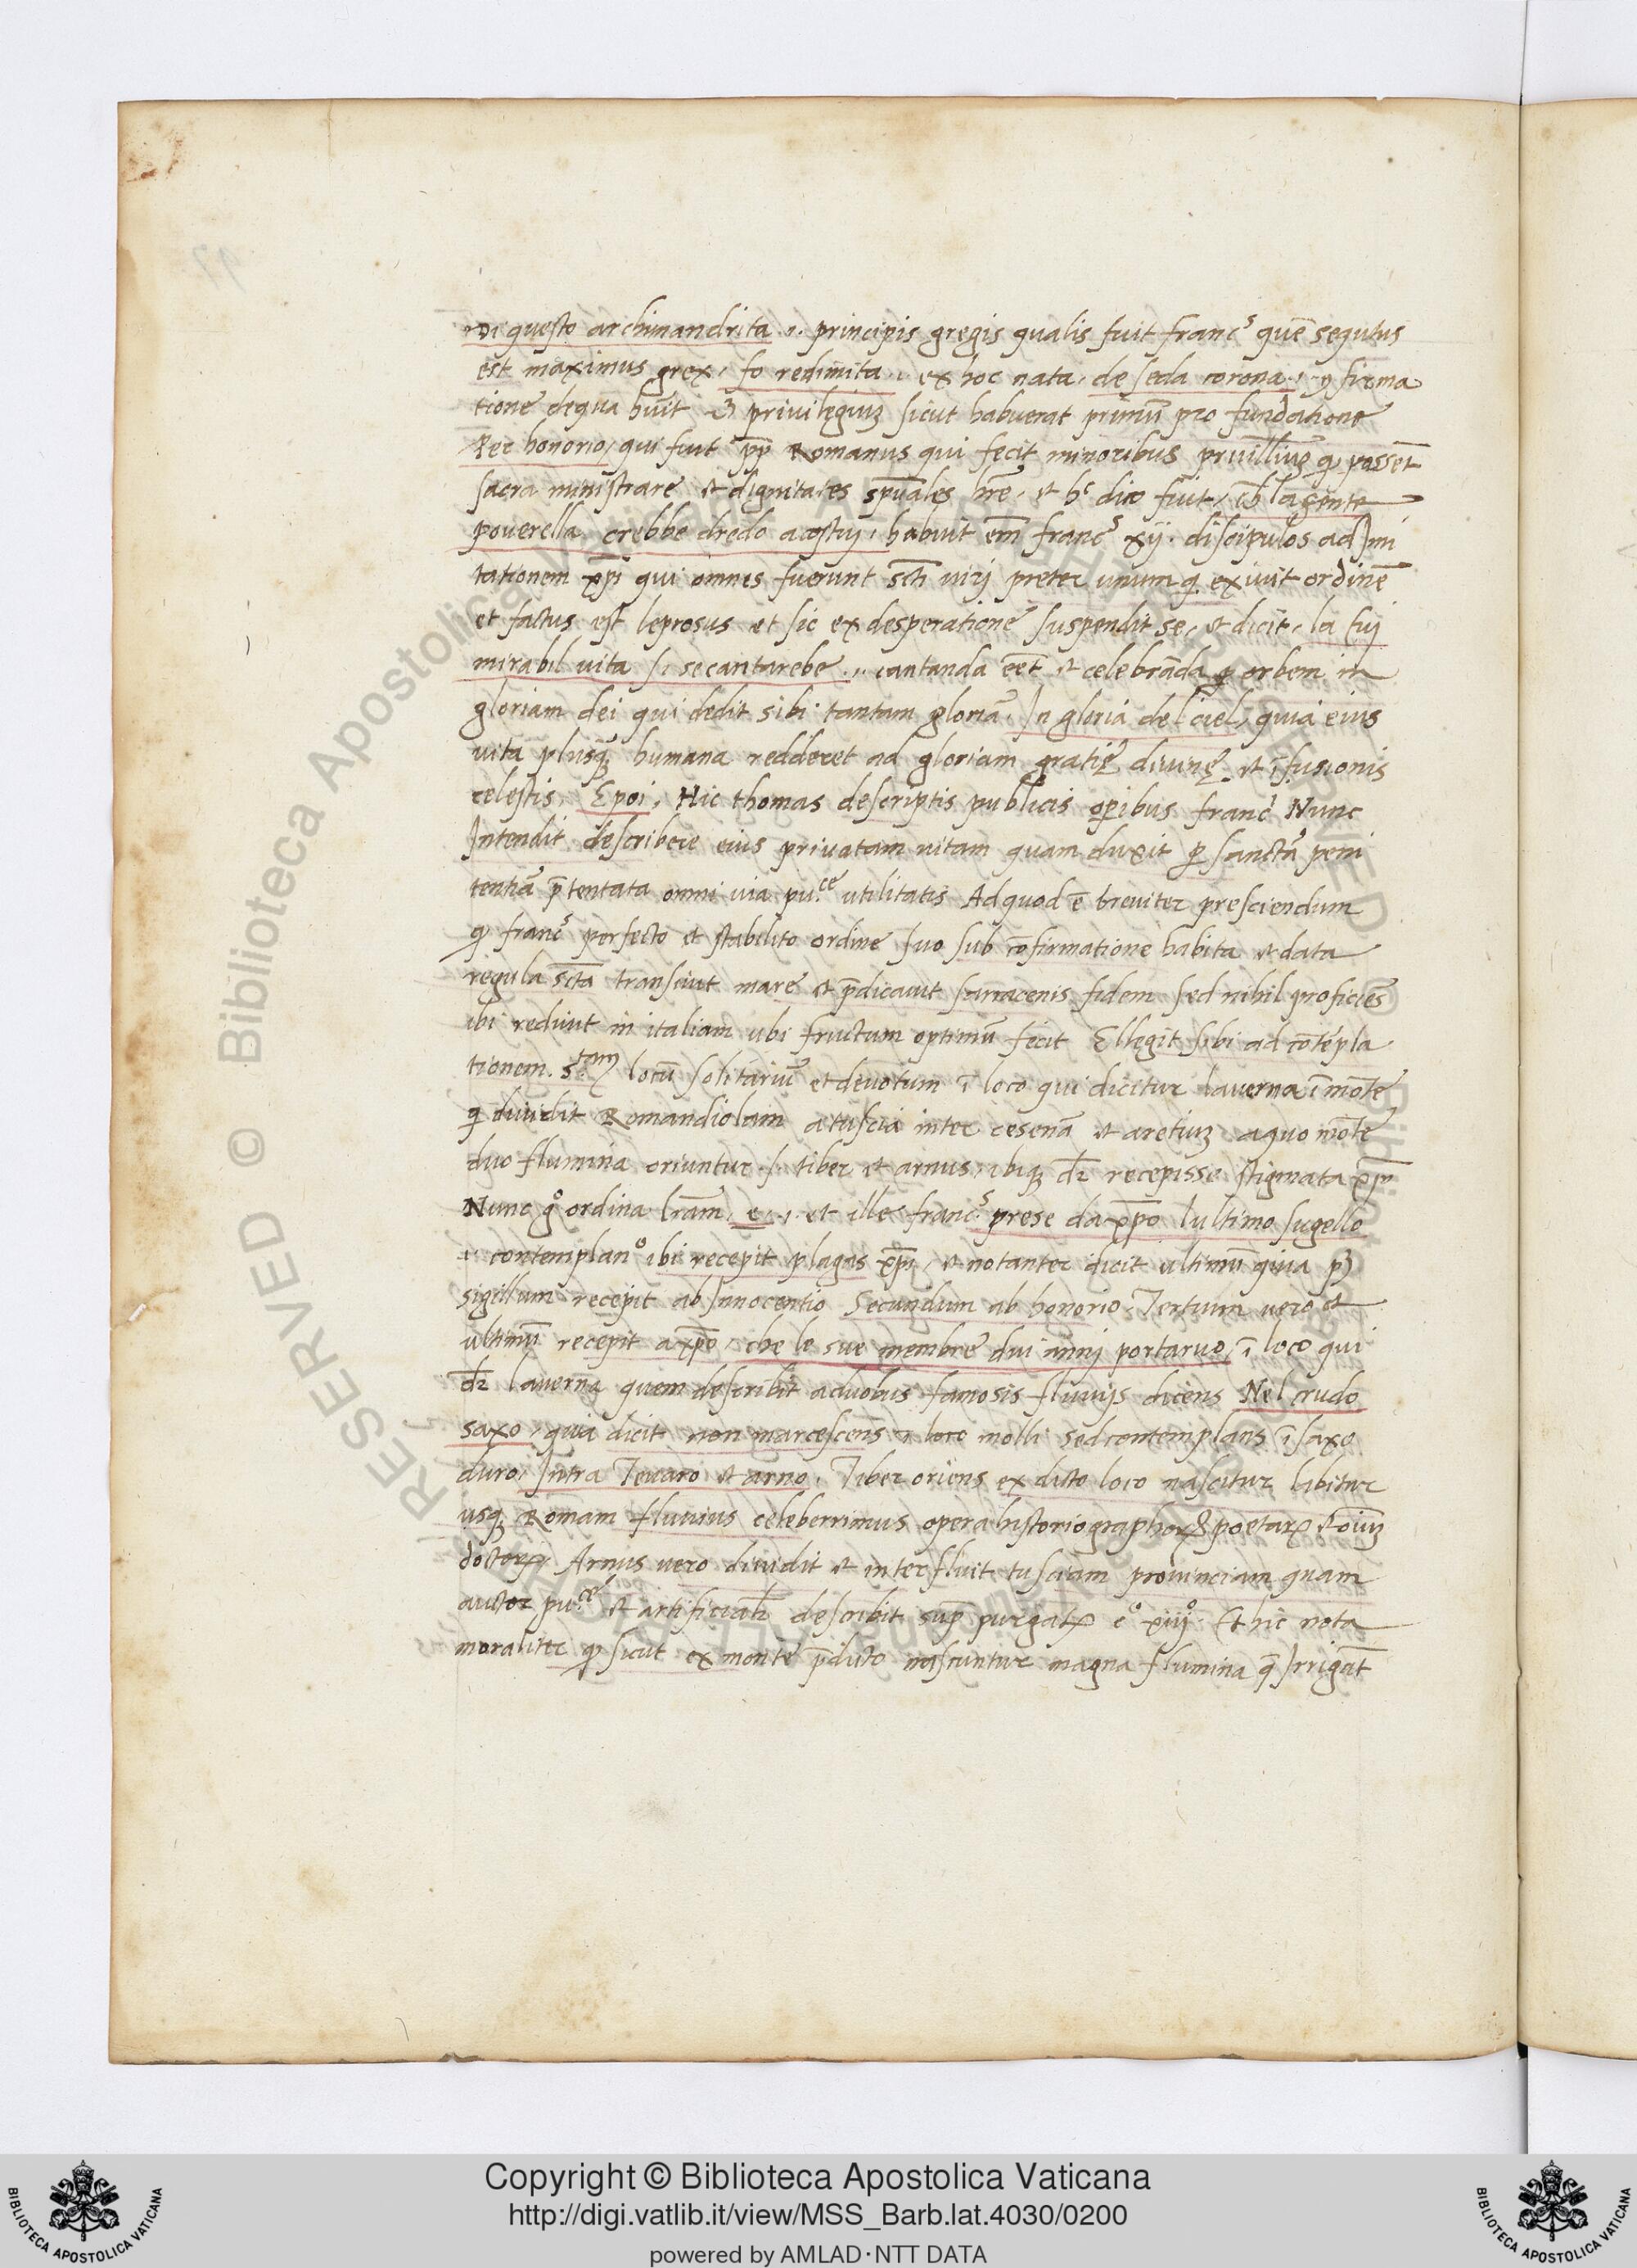 Di questo archimandrita .i. principis gregis qualis fuit franc⁹ quē segutus
est maximus grex, fo redimita .i. ex hoc nata, de seda corona .i. ꝯfirma
tione dequa huit privilegiuʒ sicut habuerat primū pro fundatione
Per honorio, qui fuit pp̄ Romanus qui fecit minoribus priuill̄iuʒ ꝙ possēt
sacra ministrare et dignitates spūales hr̄e, et hᶜ dico fuit, la gente
poverella crebbe dredo acostuj, habuit em̄ franc⁹ xij. discipulos ad Imi
tationem xp̄i qui omnes fuerunt scti virj preter unum ꝗ exiuit ordinē
et factus est leprosus et sic ex desperatione suspendit se, et dicit, la cuj
mirabil uita s. secantarebe .i. cantanda eēt et celebrāda ꝑ orbem in
gloriam dei qui dedit sibi tantam gloriā, In gloria del ciel, quia eius
uita plusqʒ humana redderet ad gloriam gratię diuinę et īfusionis
celestis, E poi, Hic thomas descriptis publicis oꝑibus franc⁹ Nunc
Intendit describere eius priuatam uitam quam duxit ꝑ sanctā peni
tentiā p̄tentata omni uia pu.ᶜᵉ utilitatis Adquod ē breuiter presciendum
ꝙ franc⁹ perfecto et stabilito ordine suo sub cōfirmatione habita et data
regula scta transiuit mare et p̄dicauit sarracenis fidem sed nihil proficiēs
ibi rediuit in italiam ubi fructum optimū fecit Ellegit sibi ad cōtēpla
tionem. s.ᵗᵃᵐ locū solitariū et deuotum ī loco qui dicitur lauerna ī mōte
ꝗ diuidit Romandiolam a tuscia inter cesenā et aretiuʒ aquo mōte
duo flumina oriuntur .s. tiber et arnus, ibiqʒ dr̄ recepisse stigmata xp̄i
Nunc gͦ ordina lr̄am, e .i. et ille franc⁹ prese da xp̄o lultimo sugello
.i. contemplanᵒ ibi recepit plagas xp̄i, et notanter dicit ultimū quia
sigillum recepit ab Innocentio Secundum ab honorio, Tertium uero et
ultimū recepit a xp̄o, che le sue membre dui annj portarno, ī loco qui
dr̄ lauerna quem describit aduobus famosis fluuijs dicens Nel crudo
saxo, quia dicit non marcescens ī loco molli sed contemplans ī saxo
duro, Intra Teuaro et arno, Tiber oriens ex dicto loco nascitur labitur
usqʒ Romam fluuius celeberrimus opera historiographoꝝ & poetaꝝ et oīuʒ
doctoꝝ, Arnus uero diuidit et interfluit tusciam prouinciam quam
auctor pu.ᶜᵉ et artificialr̄ describit sup̄ purgatꝝ cᵒ xiiijᵒ Et hic nota
moraliter ꝙ sicut ex monte p̄dicto nascuntur magna flumina q̄ Irrigāt
Copyright © Biblioteca Apostolica Vaticana
http://digi.vatlib.it/view/MSS_Barb.lat.4030/0200
powered by AMLAD·NTT DATA
BIBLIOTECA APOSTOLICA VATICANA
BIBLIOTECA APOSTOLICA VATICANA